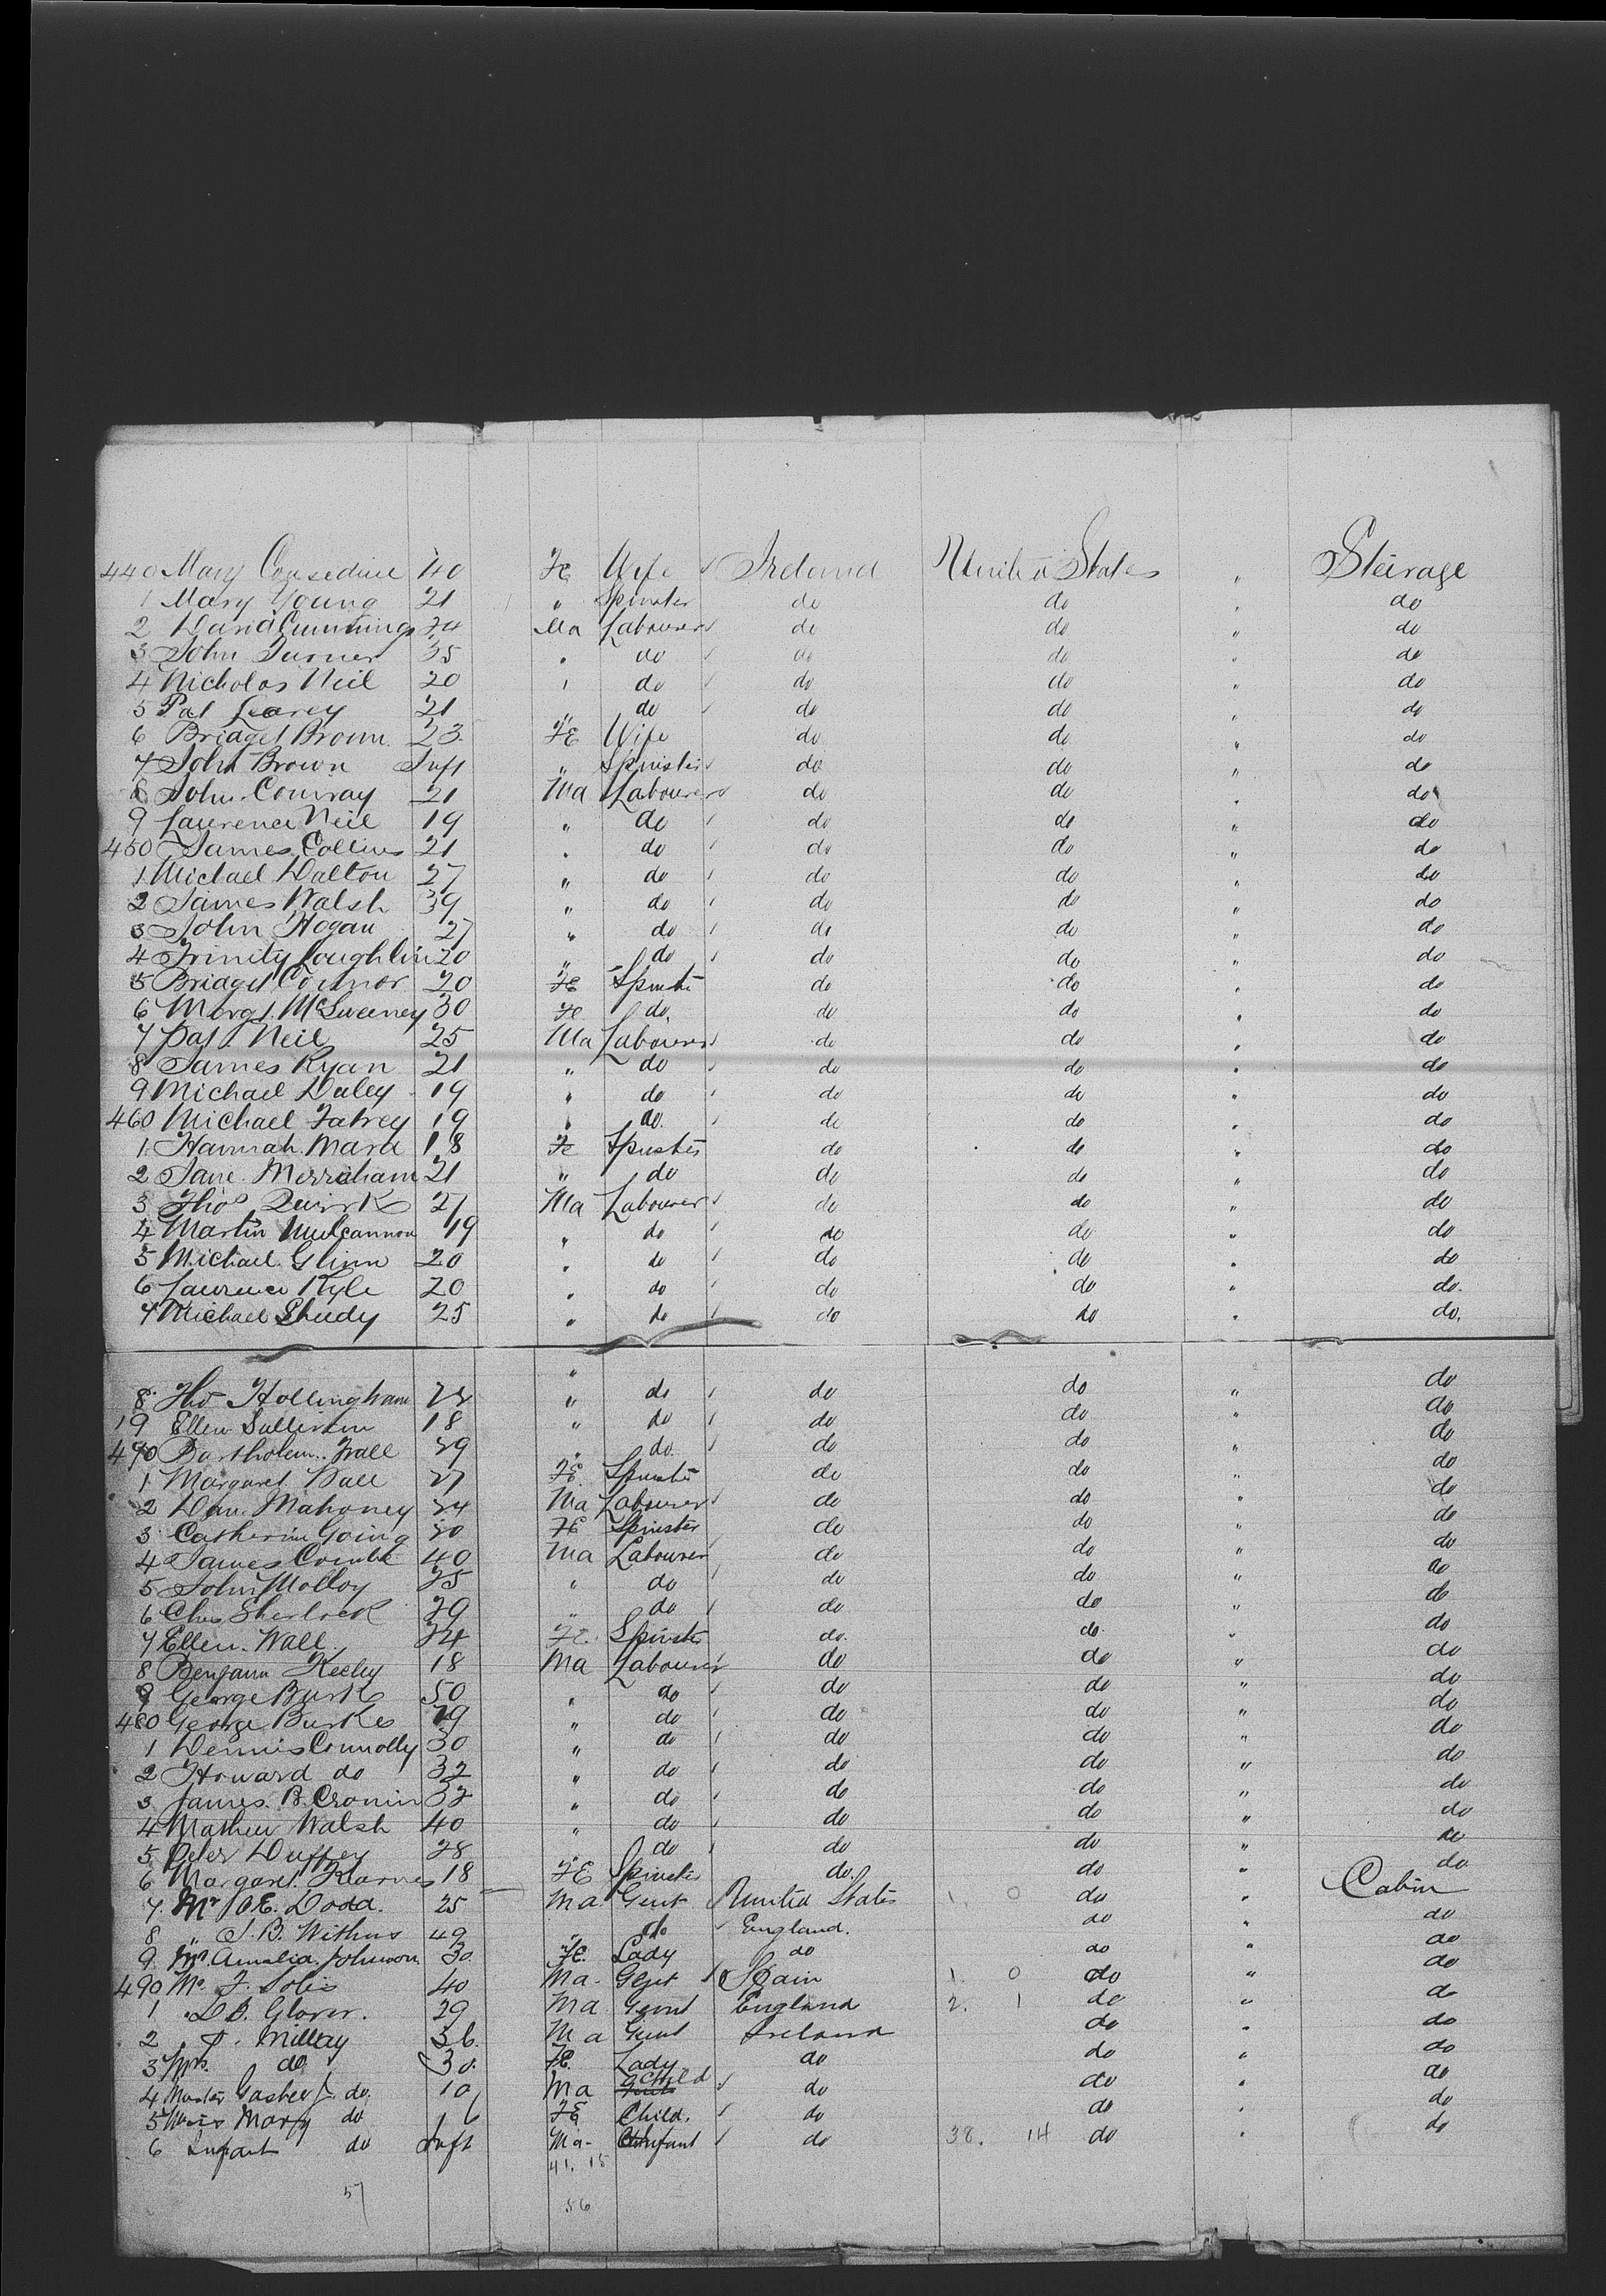 440 Mary Consedine 40 Fe Wife Ireland United States " Steirage
1 Mary Young 21 " Spinster do do " do
2 David Cummings 24 Ma Labourer do do " do
3 John Turner 35 " do do do " do
4 Nicholas Neil 20 " do do do " do
5 Pat Learey 21 " do do do " do
6 Bridget Brown 23 FE Wife do do " do
7 John Brown Inft " Spinster do do " do
8 John Conway 21 Ma Labourer do do " do
9 Laurence Neil 19 " do do do " do
450 James Collins 21 " do do do " do
1 Michael Dalton 27 " do do do " do
2 James Walsh 39 " do do do " do
3 John Hogan 27 " do do do " do
4 Trinity Loughlin 20 " do do do " do
5 Bridget Connor 20 FE Spinster do do " do
6 Margt. McSweeney 30 Fe do. do do " do
7 Pat Neil 25 Ma Labourer do do " do
8 James Ryan 21 " do do do " do
9 Michael Daley 19 " do do do " do
460 Michael Fahey 19 " do. do do " do
1 Hannah Mara 18 Fe Spinster do do " do
2 Jane Merraham 21 " do do do " do
3 Thos Quirk 27 Ma Labourer do do " do
4 Martin Mulcannon 19 " do do do " do
5 Michael Glinn 20 " do do do " do
6 Laurence Kyle 20 " do do do " do.
7 Michael Sheedy 25 " do do do " do.
8 Tho Hollingham 28 " do do do " do
19 Ellen Sullivan 18 " do do do " do
470 Bartholem. Wall 29 " do. do do " do
1 Margaret Wall 27 FE Spinster do do " do
2 Dan. Mahoney 24 Ma Labourer do do " do
3 Catherine Going 20 FE Spinster do do " do
4 James Combe 40 Ma Labourer do do " do
5 John Molloy 25 " do do do " do
6 Chas Sherlock 29 " do do do " do
7 Ellen. Wall. 24 FE. Spinster do. do " do
8 Benjamin Keeley 18 Ma Labourer do do " do
9 George Burke 50 " do do do " do
480 George Burkes 29 " do do do " do
1 Dennis Connolly 30 " do do do " do
2 Howard do 32 " do do do " do
3 James. B. Cronin 32 " do do do " do
4 Mathew Walsh 40 " do do do " do
5 Peter Duffey 28 " do do do " do
6 Margaret. Kearnes 18 FE Spinster do. do " do
7. Mr O E. Dodd. 25 Ma. Gent United States 1 0 do " Cabin
8 " J. B. Withus 49 " do England. do " do
9. Mrs Amelia. Johnson 30. FE. Lady do do " do
490 Mr. F. Solis 40 Ma. Gent Spain 1. 0 do " do
1 " D B. Glover. 29 Ma Gent England 2. 1 do " do
2 " P. Millay 36. Ma Gent Ireland do " do
3 Mrs. do 30. FE. Lady do do " do
4 Master Gasher J. do. 10 Ma Child do do " do
5 Miss Mary do 16 FE Child. do do " do
6 Infant do Inft Ma- Infant do 38. 14 do " do
41. 15
57 56